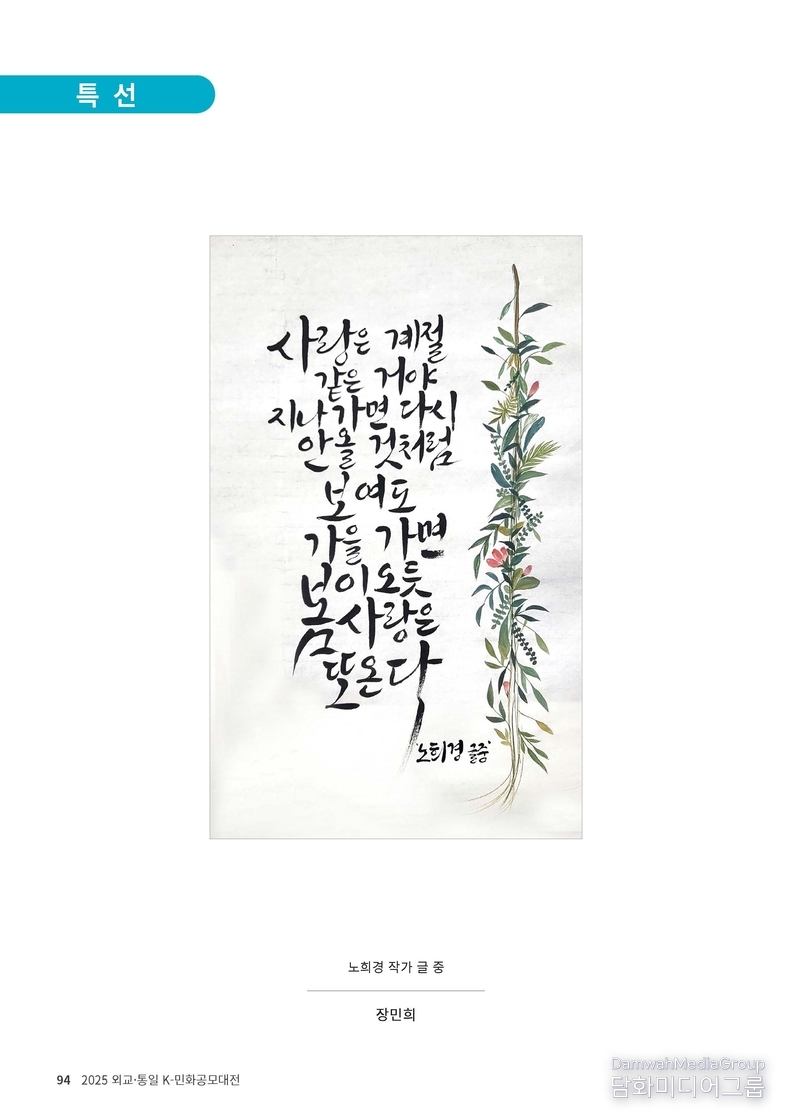 특 선
사랑은 계절
같은 거야
지나가면 다시
안올 것처럼
보여도
가을 가면
봄이 오듯
사랑은
또 온다
'노희경 글중'
노희경 작가 글 중
장민희
94 2025 외교·통일 K-민화공모대전
DamwahMediaGroup
담화미디어그룹